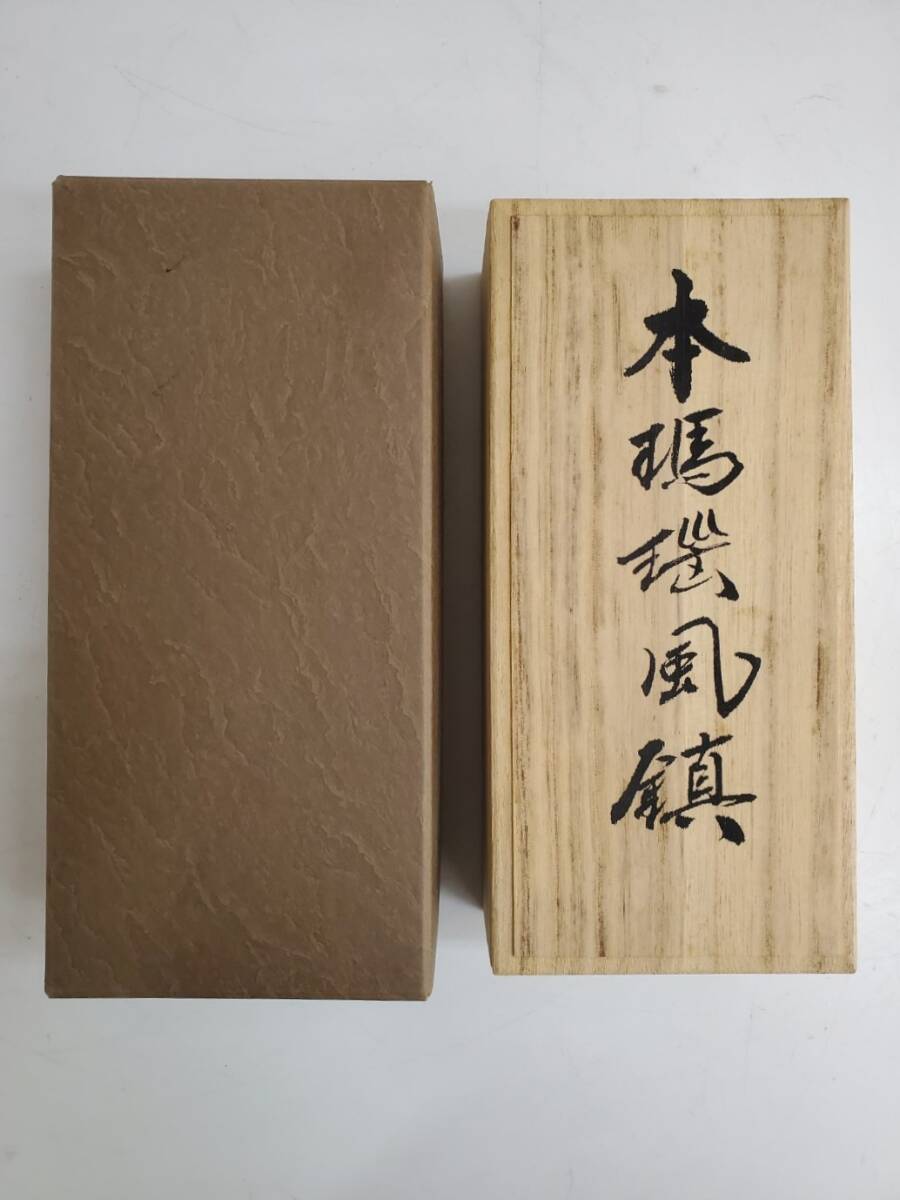 本瑪瑙風鎮